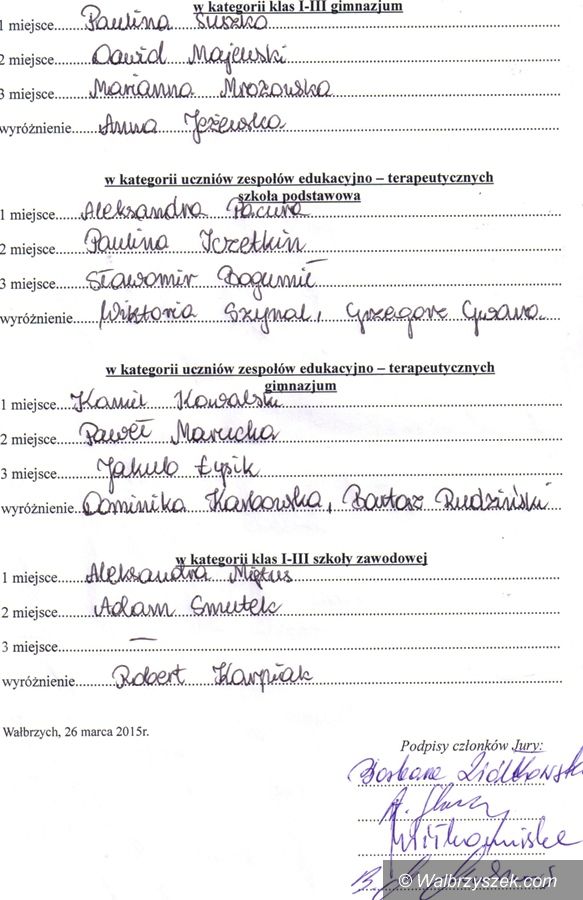 w kategorii klas I-III gimnazjum
1 miejsce.... Paulina Suszko
2 miejsce.... Dawid Majewski
3 miejsce.... Marianna Mrozowska
wyróżnienie.... Anna Jeżewska
w kategorii uczniów zespołów edukacyjno – terapeutycznych
szkoła podstawowa
1 miejsce.... Aleksandra Pacura
2 miejsce.... Paulina
3 miejsce.... Sławomir Bogumił
wyróżnienie.... Wiktoria Szynal, Grzegorz
w kategorii uczniów zespołów edukacyjno – terapeutycznych
gimnazjum
1 miejsce.... Kamil Kowalski
2 miejsce.... Paweł Marucha
3 miejsce.... Jakub Łysik
wyróżnienie.... Dominika Karbowska, Bartosz Rudziński
w kategorii klas I-III szkoły zawodowej
1 miejsce.... Aleksandra Miętus
2 miejsce.... Adam Smutek
3 miejsce.... —
wyróżnienie.... Robert Karpiak
Wałbrzych, 26 marca 2015r.
Podpisy członków Jury:
© Walbrzyszek.com